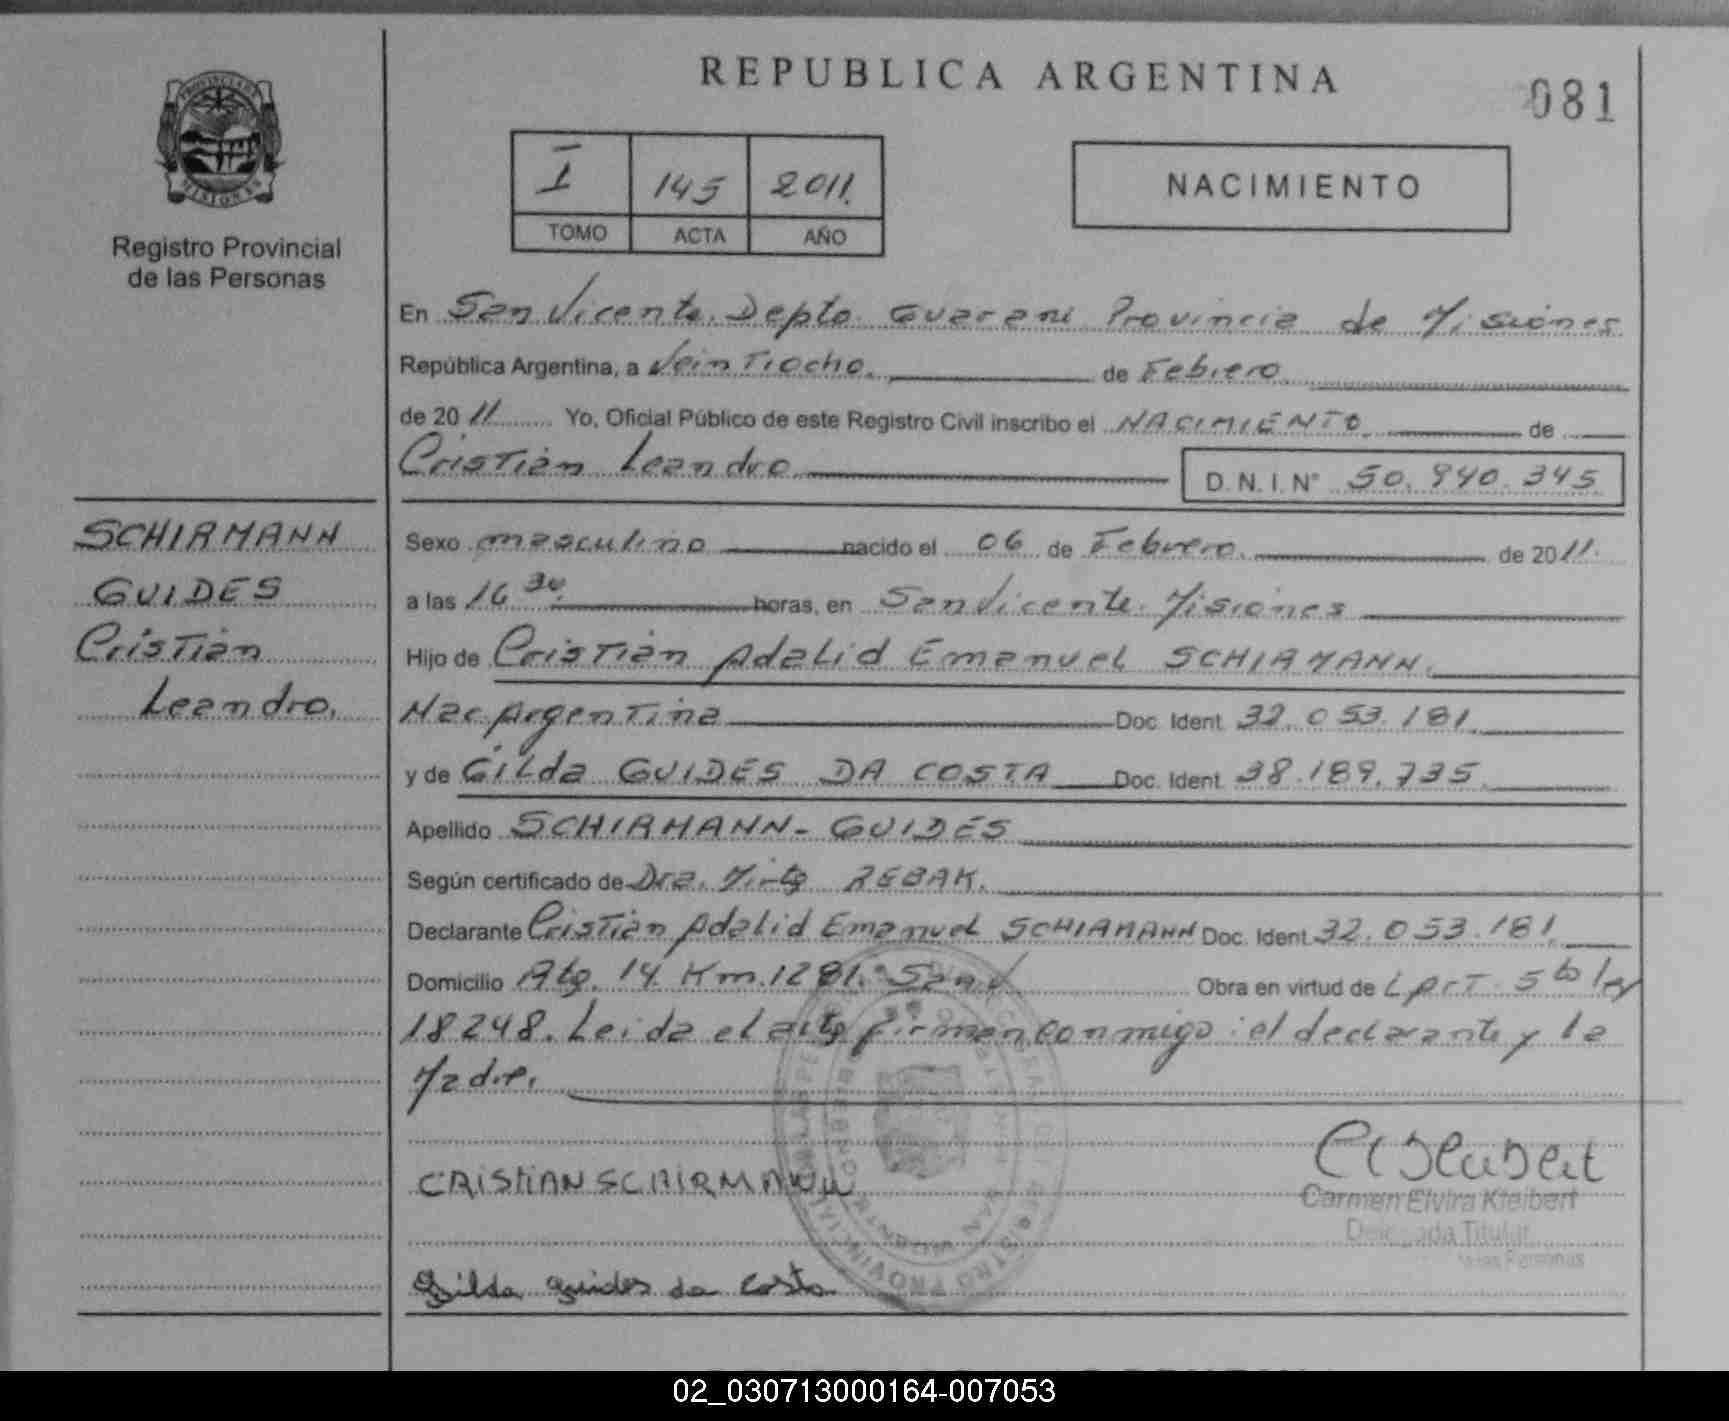 REPUBLICA ARGENTINA
081
PROVINCIA DE MISIONES
Registro Provincial
de las Personas
I 145 2011.
TOMO ACTA AÑO
NACIMIENTO
En San Vicente. Depto. Guarani Provincia de Misiones
República Argentina, a Veintiocho. de Febrero
de 2011 Yo, Oficial Público de este Registro Civil inscribo el NACIMIENTO de
Cristian Leandro
D. N. I. N° 50.940.345
SCHIRMANN
GUIDES
Cristian
Leandro.
Sexo masculino nacido el 06 de Febrero. de 2011.
a las 16 30. horas, en San Vicente. Misiones
Hijo de Cristian Adalid Emanuel SCHIRMANN.
Nac. Argentina Doc. Ident. 32.053.181
y de Gilda GUIDES DA COSTA Doc. Ident. 38.189.735
Apellido SCHIRMANN-GUIDES
Según certificado de Dra. Mirta REBAK.
Declarante Cristian Adalid Emanuel SCHIRMANN Doc. Ident. 32.053.181
Domicilio Rta. 14. Km. 1281. San V Obra en virtud de L Art. 5to ley
18248. Leida el acta firman conmigo: el declarante y la
Madre.
CRISTIAN SCHIRMANN
Carmen Elvira Kleibert
Delegada Titular
las Personas
Gilda guides da costa
02_030713000164-007053